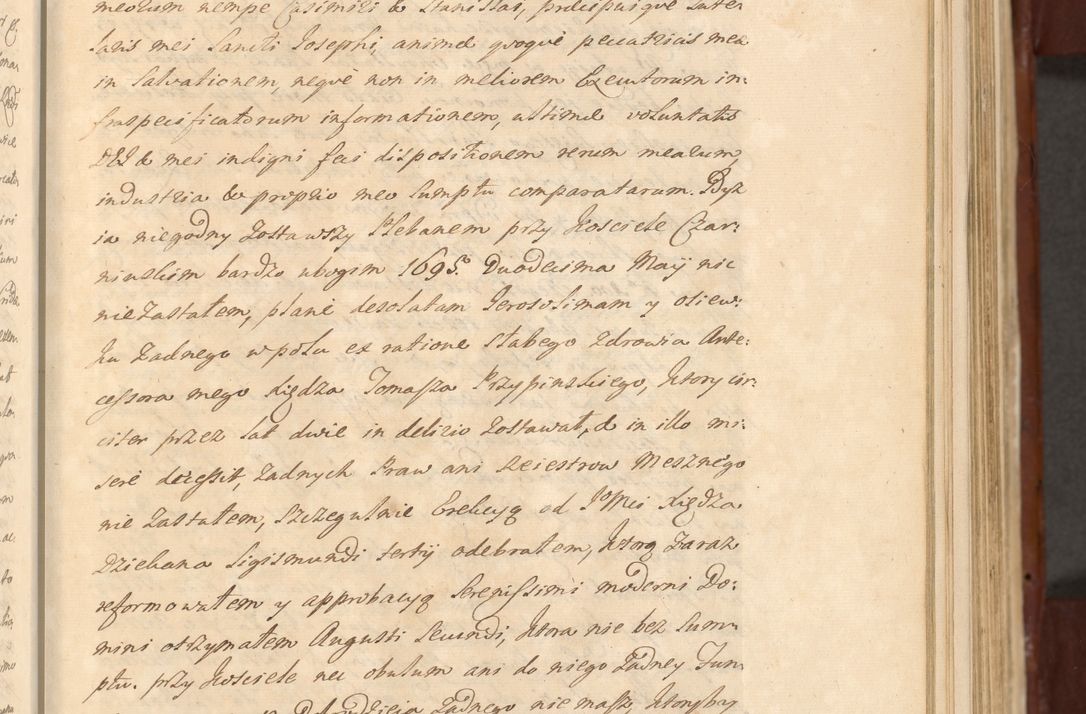 meorum nempe Casimiri & Stanislai, præcipuiqve Tute:
laris mei Sancti Josephi, animæ qvoqve peccatricis meæ
in salvationem, neqve non in meliorem Executorum in:
fraspecificatorum informationem, ultimæ voluntatis
DEI & mei indigni feci dispositionem rerum mearum,
industria & proprio meo sumptu comparatarum. Będąc
ia niegodny zostawszy Plebanem przy Kosciele Czar:
ninskim bardzo ubogim 1695. Duodecima Maÿ nic
nie zastałem, planè desolatam Jerosolimam y osiew:
ku żadnego w polu ex ratione słabego zdrowia Ante:
cessora mego Xiędza Tomasza Przypinskiego, ktory cir:
citer przez lat dwie in delirio zostawał, & in illo mi:
serè decessit, żadnych Praw ani Reiestrow Mesznego
nie zastałem, szczegulnie Erekcyą od JoMci Xiędza
Dziekana Sigismundi tertÿ odebrałem, ktorą zaraz
reformowałem y approbacyą Serenissimi moderni Do:
mini otrzymałem Augusti Secundi, ktora nie bez sum:
ptu. przy Kosciele nec obulum ani do niego żadney Fun:
żadnego nie masz, ktoryby